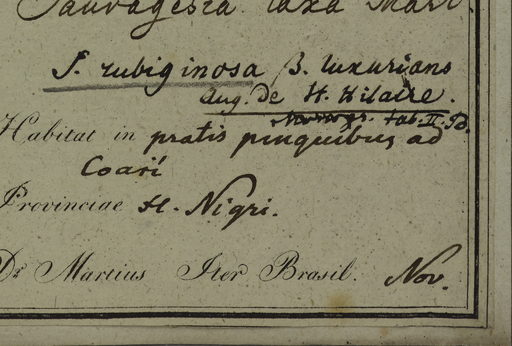 Sauvagesia laxa Mart.
S. rubiginosa β. luxurians
Aug. de St. Hilaire.
tab. II. B.
Habitat in pratis pinquibus ad
Coari
Provinciae R. Nigri.
Dr. Martius Iter Brasil. Nov.